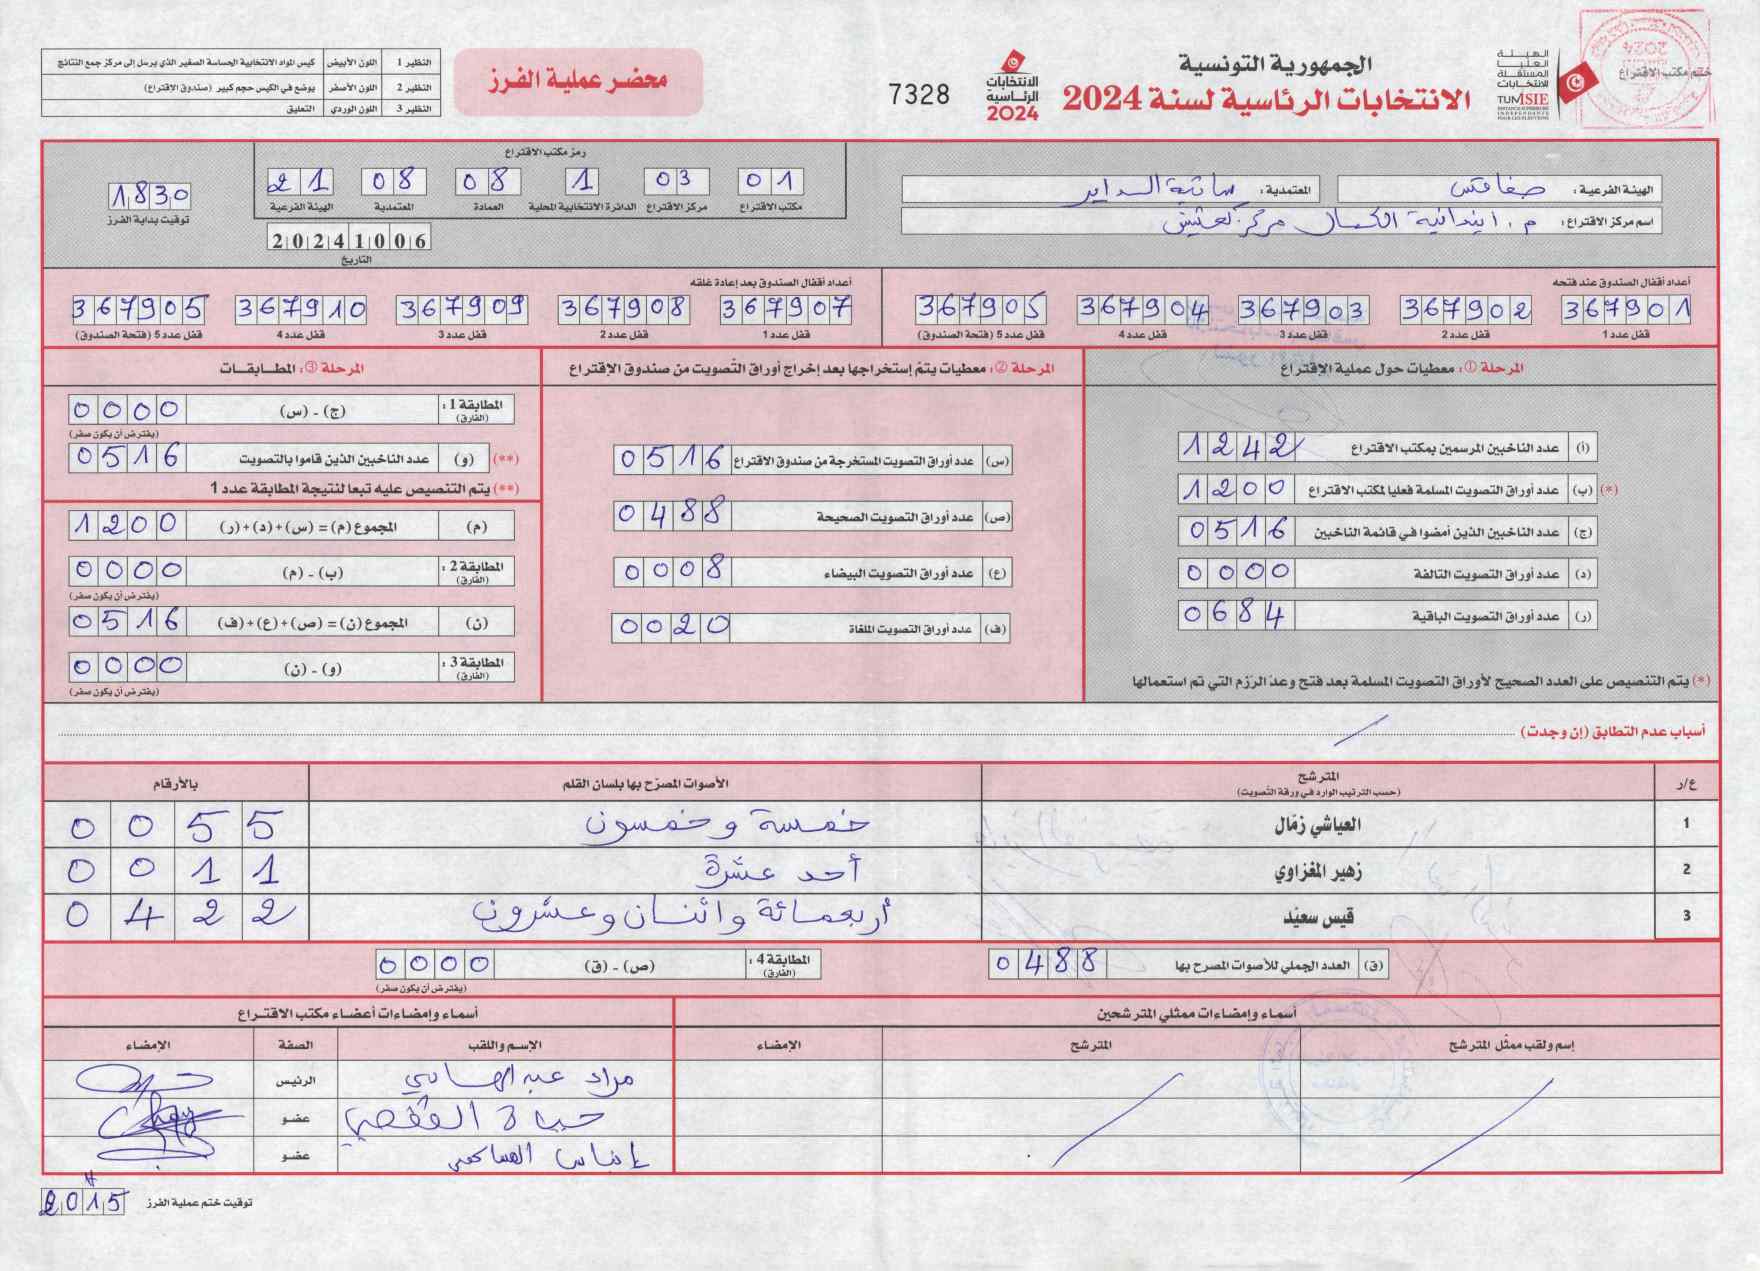 الجمهورية التونسية
الانتخابات الرئاسية لسنة 2024
الهيئة العليا المستقلة للانتخابات
TUNISIE
INSTANCE SUPERIEURE INDEPENDANTE POUR LES ELECTIONS
ختم مكتب الاقتراع
2024
الانتخابات الرئاسية 2024
7328
محضر عملية الفرز
النظير 1 اللون الأبيض كيس المواد الانتخابية الحساسة الصغير الذي يرسل إلى مركز جمع النتائج
النظير 2 اللون الأصفر يوضع في الكيس حجم كبير (صندوق الإقتراع)
النظير 3 اللون الوردي التعليق
الهيئة الفرعية : صفاقس
المعتمدية : ساقية الداير
اسم مركز الاقتراع : م. ابتدائية الكمال مركز كعنيش
رمز مكتب الاقتراع
01 03 1 08 08 21
مكتب الاقتراع مركز الاقتراع الدائرة الانتخابية المحلية العمادة المعتمدية الهيئة الفرعية
20241006
التاريخ
1830
توقيت بداية الفرز
أعداد أقفال الصندوق عند فتحه
367901 367902 367903 367904 367905
قفل عدد 1 قفل عدد 2 قفل عدد 3 قفل عدد 4 قفل عدد 5 (فتحة الصندوق)
أعداد أقفال الصندوق بعد إعادة غلقه
367907 367908 367909 367910 367905
قفل عدد 1 قفل عدد 2 قفل عدد 3 قفل عدد 4 قفل عدد 5 (فتحة الصندوق)
المرحلة ① : معطيات حول عملية الإقتراع
(أ) عدد الناخبين المرسمين بمكتب الاقتراع 1242
(*) (ب) عدد أوراق التصويت المسلمة فعليا لمكتب الاقتراع 1200
(ج) عدد الناخبين الذين أمضوا في قائمة الناخبين 0516
(د) عدد أوراق التصويت التالفة 0000
(ر) عدد أوراق التصويت الباقية 0684
(*) يتم التنصيص على العدد الصحيح لأوراق التصويت المسلمة بعد فتح وعدّ الرّزم التي تم استعمالها
المرحلة ② : معطيات يتمّ إستخراجها بعد إخراج أوراق التّصويت من صندوق الإقتراع
(س) عدد أوراق التصويت المستخرجة من صندوق الاقتراع 0516
(ص) عدد أوراق التصويت الصحيحة 0488
(ع) عدد أوراق التصويت البيضاء 0008
(ف) عدد أوراق التصويت الملغاة 0020
المرحلة ③ : المطابقات
المطابقة 1 : (الفارق) (ج) - (س) 0000
(يفترض أن يكون صفر)
(**) (و) عدد الناخبين الذين قاموا بالتصويت 0516
(**) يتم التنصيص عليه تبعا لنتيجة المطابقة عدد 1
(م) المجموع (م) = (س) + (د) + (ر) 1200
المطابقة 2 : (الفارق) (ب) - (م) 0000
(يفترض أن يكون صفر)
(ن) المجموع (ن) = (ص) + (ع) + (ف) 0516
المطابقة 3 : (الفارق) (و) - (ن) 0000
(يفترض أن يكون صفر)
أسباب عدم التطابق (إن وجدت)
ع/ر المترشح (حسب الترتيب الوارد في ورقة التّصويت) الأصوات المصرّح بها بلسان القلم بالأرقام
1 العياشي زمّال خمسة وخمسون 0055
2 زهير المغزاوي أحد عشرة 0011
3 قيس سعيّد أربعمائة واثنان وعشرون 0422
(ق) العدد الجملي للأصوات المصرح بها 0488
المطابقة 4 : (الفارق) (ص) - (ق) 0000
(يفترض أن يكون صفر)
أسماء وإمضاءات ممثلي المترشحين
إسم ولقب ممثّل المترشح المترشح الإمضاء
أسماء وإمضاءات أعضاء مكتب الاقتراع
الإسم واللقب الصفة الإمضاء
مراد عبد الهادي الرئيس
حياة القفصي عضو
إيناس عضو
توقيت ختم عملية الفرز 2015